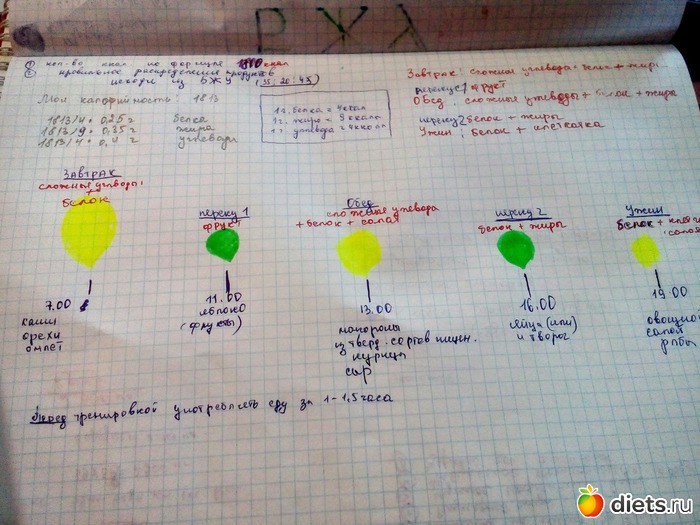 РЖА
① кол-во ккал по формуле 1810 ккал
② правильное распределение продуктов
исходя из БЖУ (35:20:45)
Мои калорийность: 1813
1813/4 • 0,25 г белка
1813/9 • 0,35 г жира
1813/4 • 0,4 г углеводы
1г. белка = 4 ккал
1г. жира = 9 ккала
1 г. углевода = 4 ккал
Завтрак: сложные углевода + белок + жиры.
перекус 1 фрукт
Обед: сложные углеводы + белок + жиры
перекус 2 белок + жиры
Ужин: белок + клетчатка
Завтрак
сложные углводы
+
белок
7.00
каши
орехи
омлет
перекус 1
фрукт
11.00
яблоко
(фрукты)
Обед
сложные углевода
+ белок + салат
13.00
макароны
из тверд. сортов пшен.
курица
сыр
перекус 2
белок + жиры
16.00
яйца (или)
и творог
Ужин
белок +
19.00
овощной
салат
рыба
Перед тренировкой употреблять еду за 1-1,5 часа
diets.ru